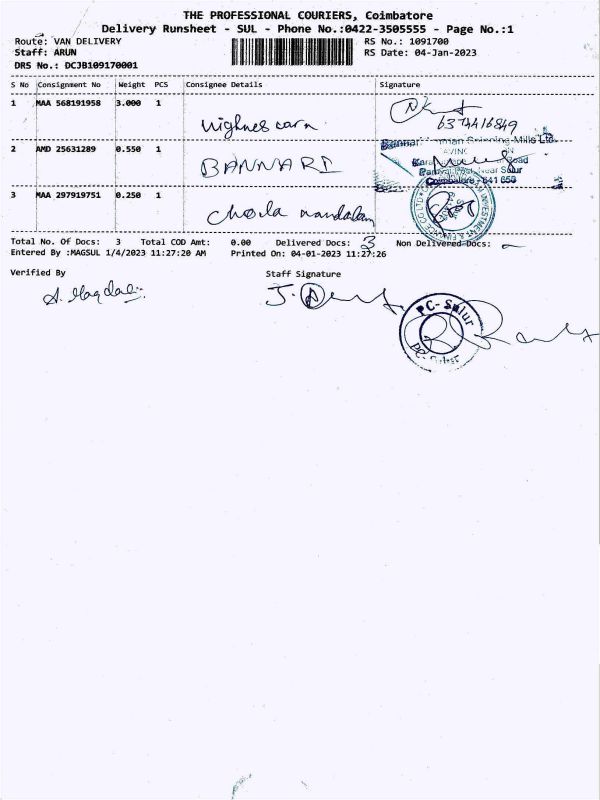 THE PROFESSIONAL COURIERS, Coimbatore
Delivery Runsheet - SUL - Phone No.:0422-3505555 - Page No.:1
Route: VAN DELIVERY
RS No.: 1091700
Staff: ARUN
RS Date: 04-Jan-2023
DRS No.: DCJB109170001
S No Consignment No Weight PCS Consignee Details Signature
1 MAA 568191958 3.000 1
6374416849
2 AMD 25631289 0.550 1 BANNARI
Spinning Mills Ltd.
Near Sulur
Coimbatore - 641 659
3 MAA 297919751 0.250 1 Chola mandalam
Total No. Of Docs: 3 Total COD Amt: 0.00 Delivered Docs: 3 Non Delivered Docs:
Entered By :MAGSUL 1/4/2023 11:27:20 AM Printed On: 04-01-2023 11:27:26
Verified By Staff Signature
PC- Sulur